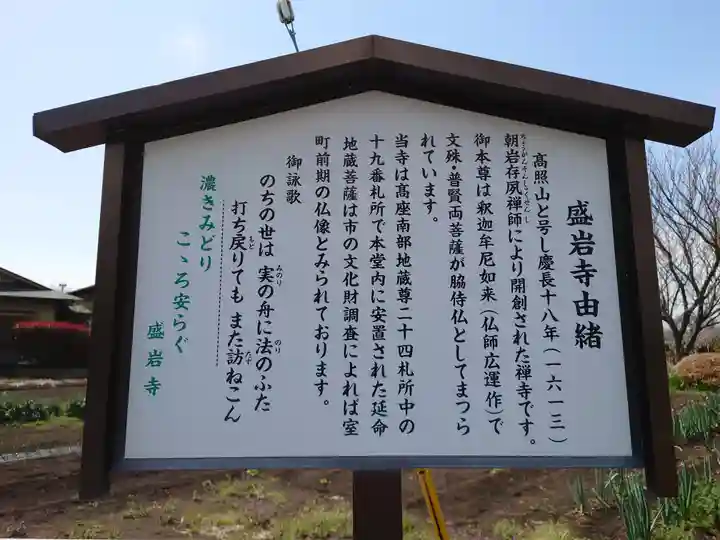 盛岩寺由緒
高照山と号し慶長十八年（一六一三）
朝岩存夙禅師により開創された禅寺です。
御本尊は釈迦牟尼如来（仏師広運作）で
文殊・普賢両菩薩が脇侍仏としてまつら
れています。
当寺は高座南部地蔵尊二十四札所中の
十九番札所で本堂内に安置された延命
地蔵菩薩は市の文化財調査によれば室
町前期の仏像とみられております。
御詠歌
のちの世は 実の舟に法のふた
打ち戻りても また訪ねこん
濃きみどり
こゝろ安らぐ
盛岩寺